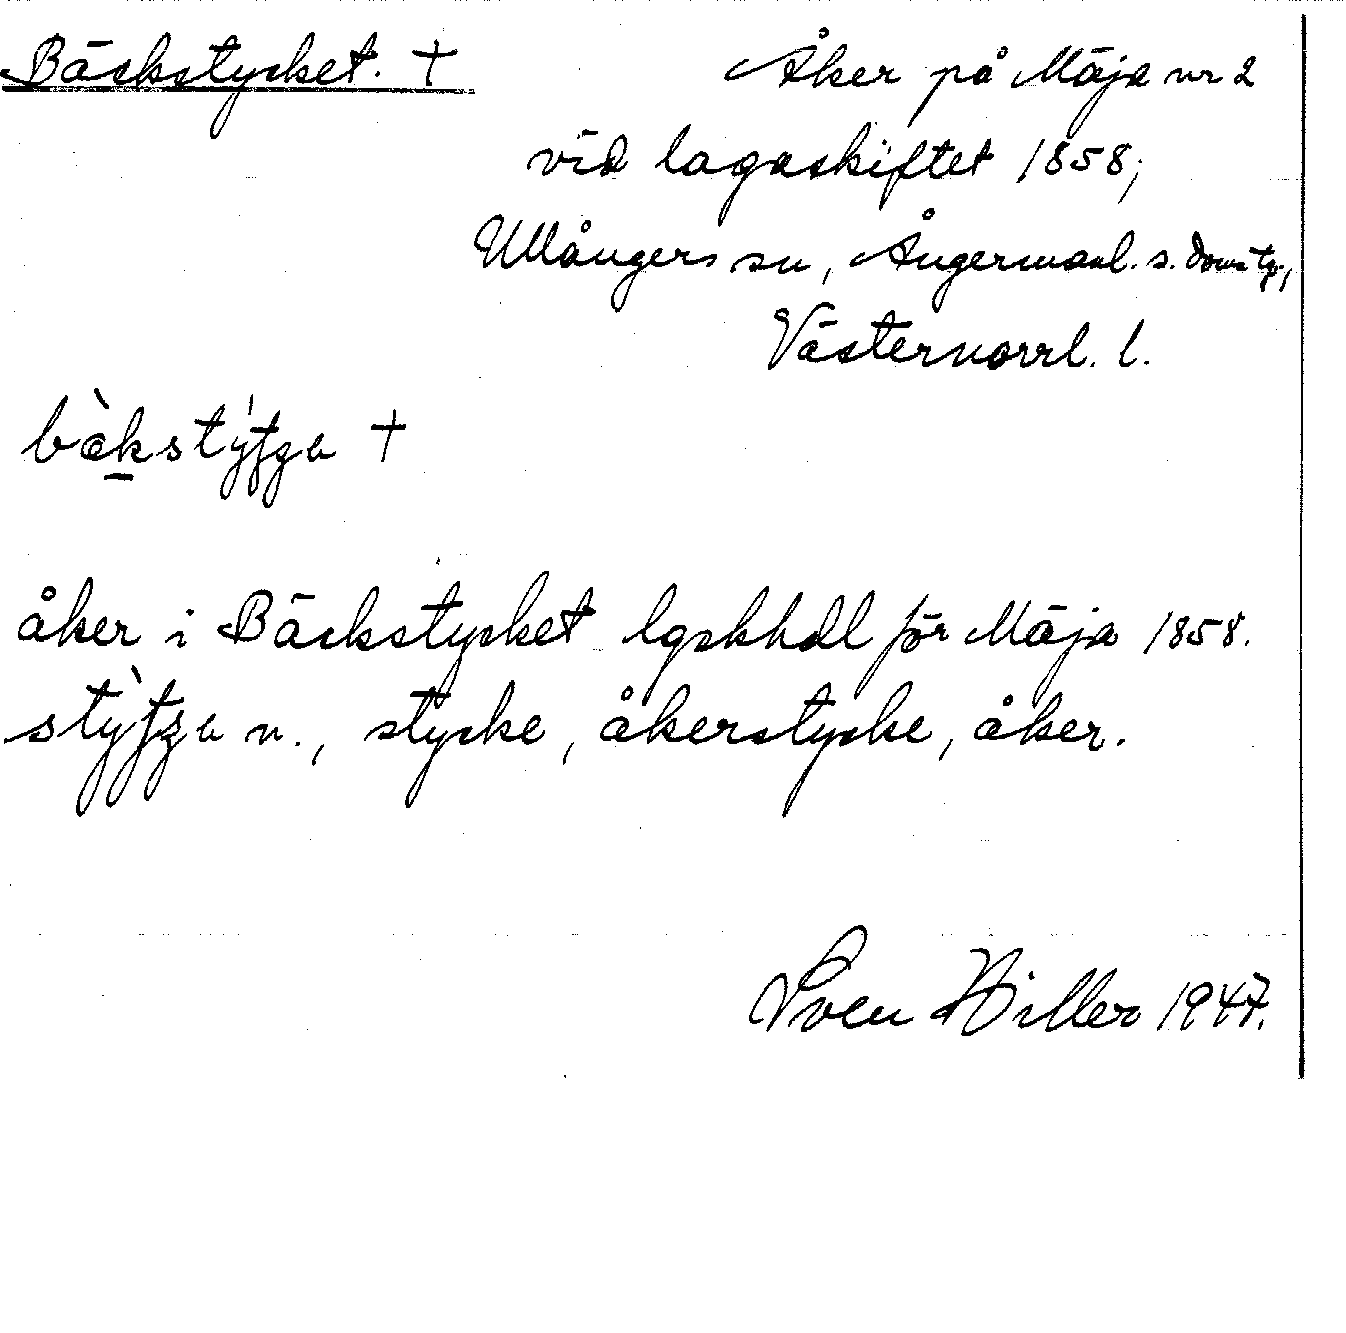 Bäckstycket. † Åker på Mäja nr 2
vid lagaskiftet 1858;
Ullångers sn, Ångermanl. s. domsg.,
Västernorrl. l.
†
åker i Bäckstycket lgskhdl för Mäja 1858.
n., stycke, åkerstycke, åker.
Sven Hiller 1947.